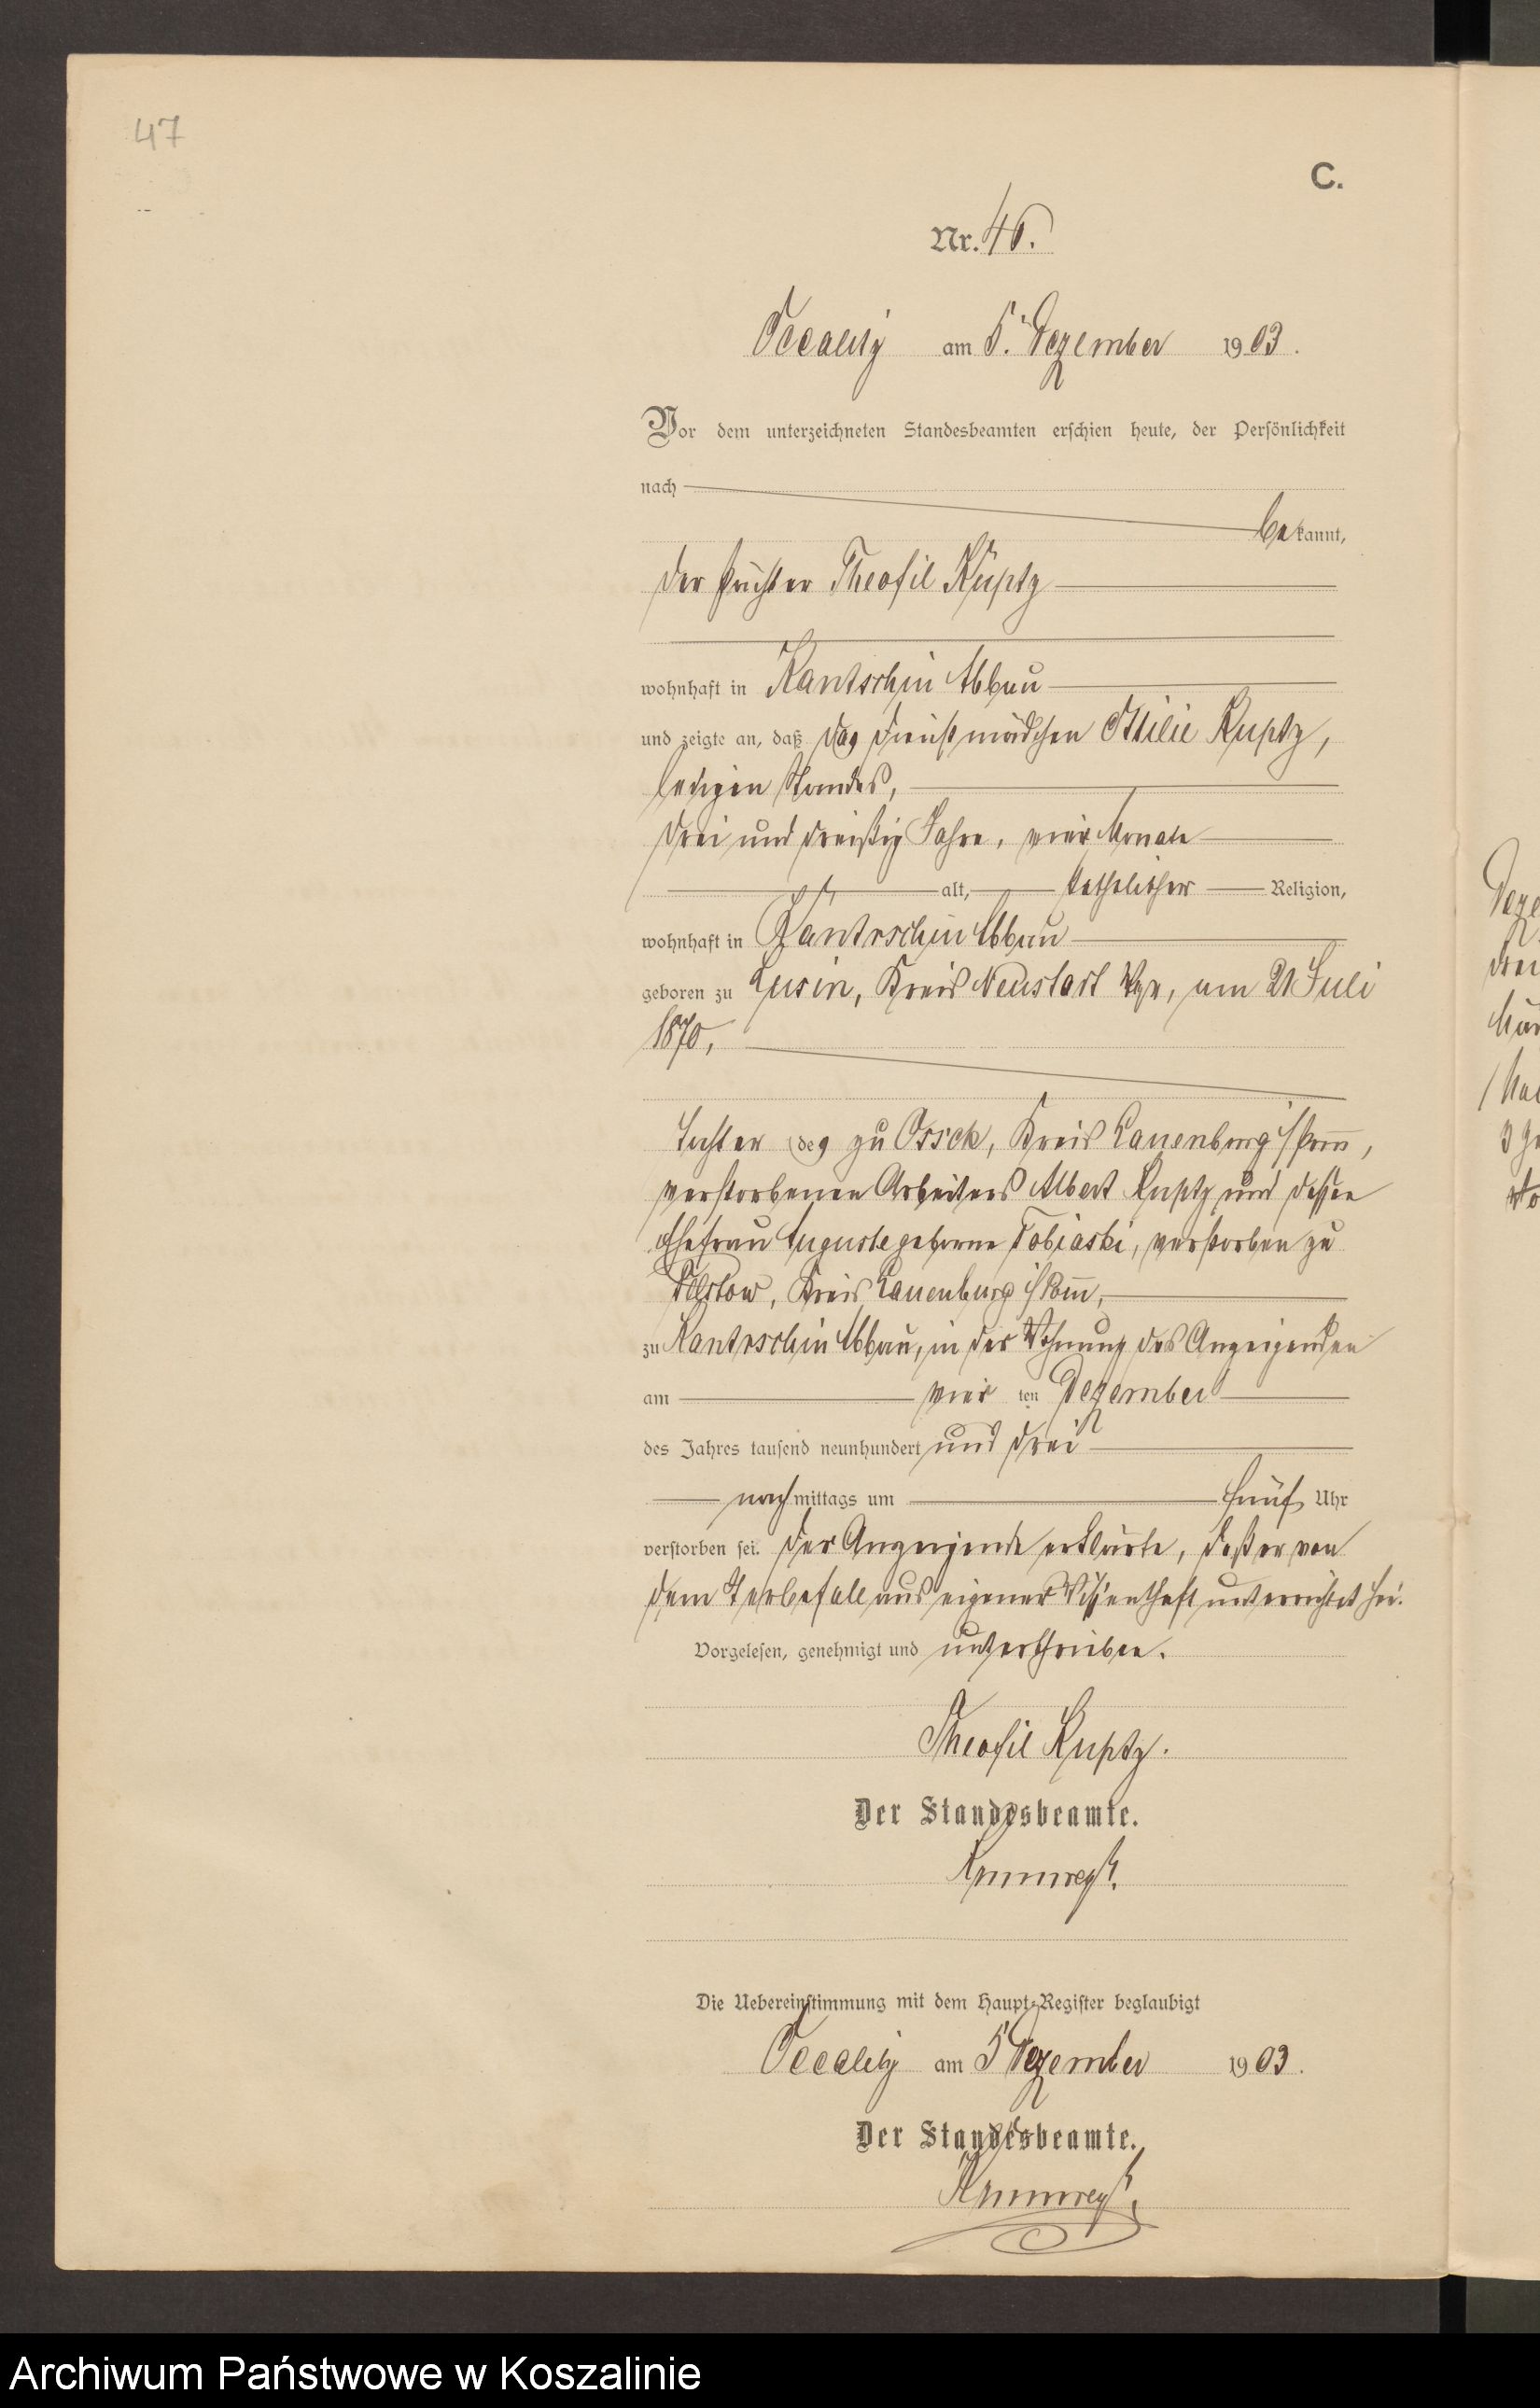 47
C.
Nr. 46.
Occalitz am 5. Dezember 1903.
Vor dem unterzeichneten Standesbeamten erschien heute, der Persönlichkeit
nach
bekannt,
der Pächter Theofil Kuptz
wohnhaft in Kantrschin Abbau
und zeigte an, daß das Dienstmädchen Ottilie Kuptz,
ledigen Standes,
drei und dreißig Jahre, vier Monate
alt, katholischer Religion,
wohnhaft in Kantrschin Abbau
geboren zu Lusin, Kreis Neustadt Wpr, am 21 Juli
1870,
Tochter des zu Osseck, Kreis Lauenburg i/Pom,
verstorbenen Arbeiters Albert Kuptz und dessen
Ehefrau Auguste geborne Tobiaski, verstorben zu
Kreis Lauenburg i/Pom,
zu Kantrschin Abbau, in der Wohnung des Anzeigenden
am vier ten Dezember
des Jahres tausend neunhundert und drei
nachmittags um fünf Uhr
verstorben sei. Der Anzeigende erklärte, daß er von
dem Sterbefall aus eigener Wissenschaft unterrichtet sei.
Vorgelesen, genehmigt und unterschrieben.
Theofil Kuptz.
Der Standesbeamte.
Die Uebereinstimmung mit dem Haupt-Register beglaubigt
Occalitz am 5 Dezember 1903.
Der Standesbeamte.
Archiwum Państwowe w Koszalinie